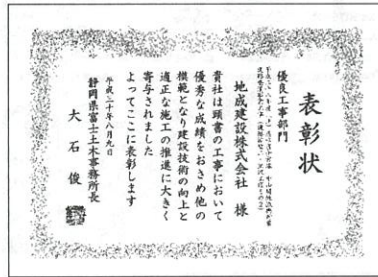 表彰状
優良工事部門
地成建設株式会社 様
貴社は頭書の工事において
優秀な成績をおさめ他の
模範となり建設技術の向上と
適正な施工の推進に大きく
寄与されました
よってここに表彰します
平成二十年八月九日
静岡県富士土木事務所長
大石 俊